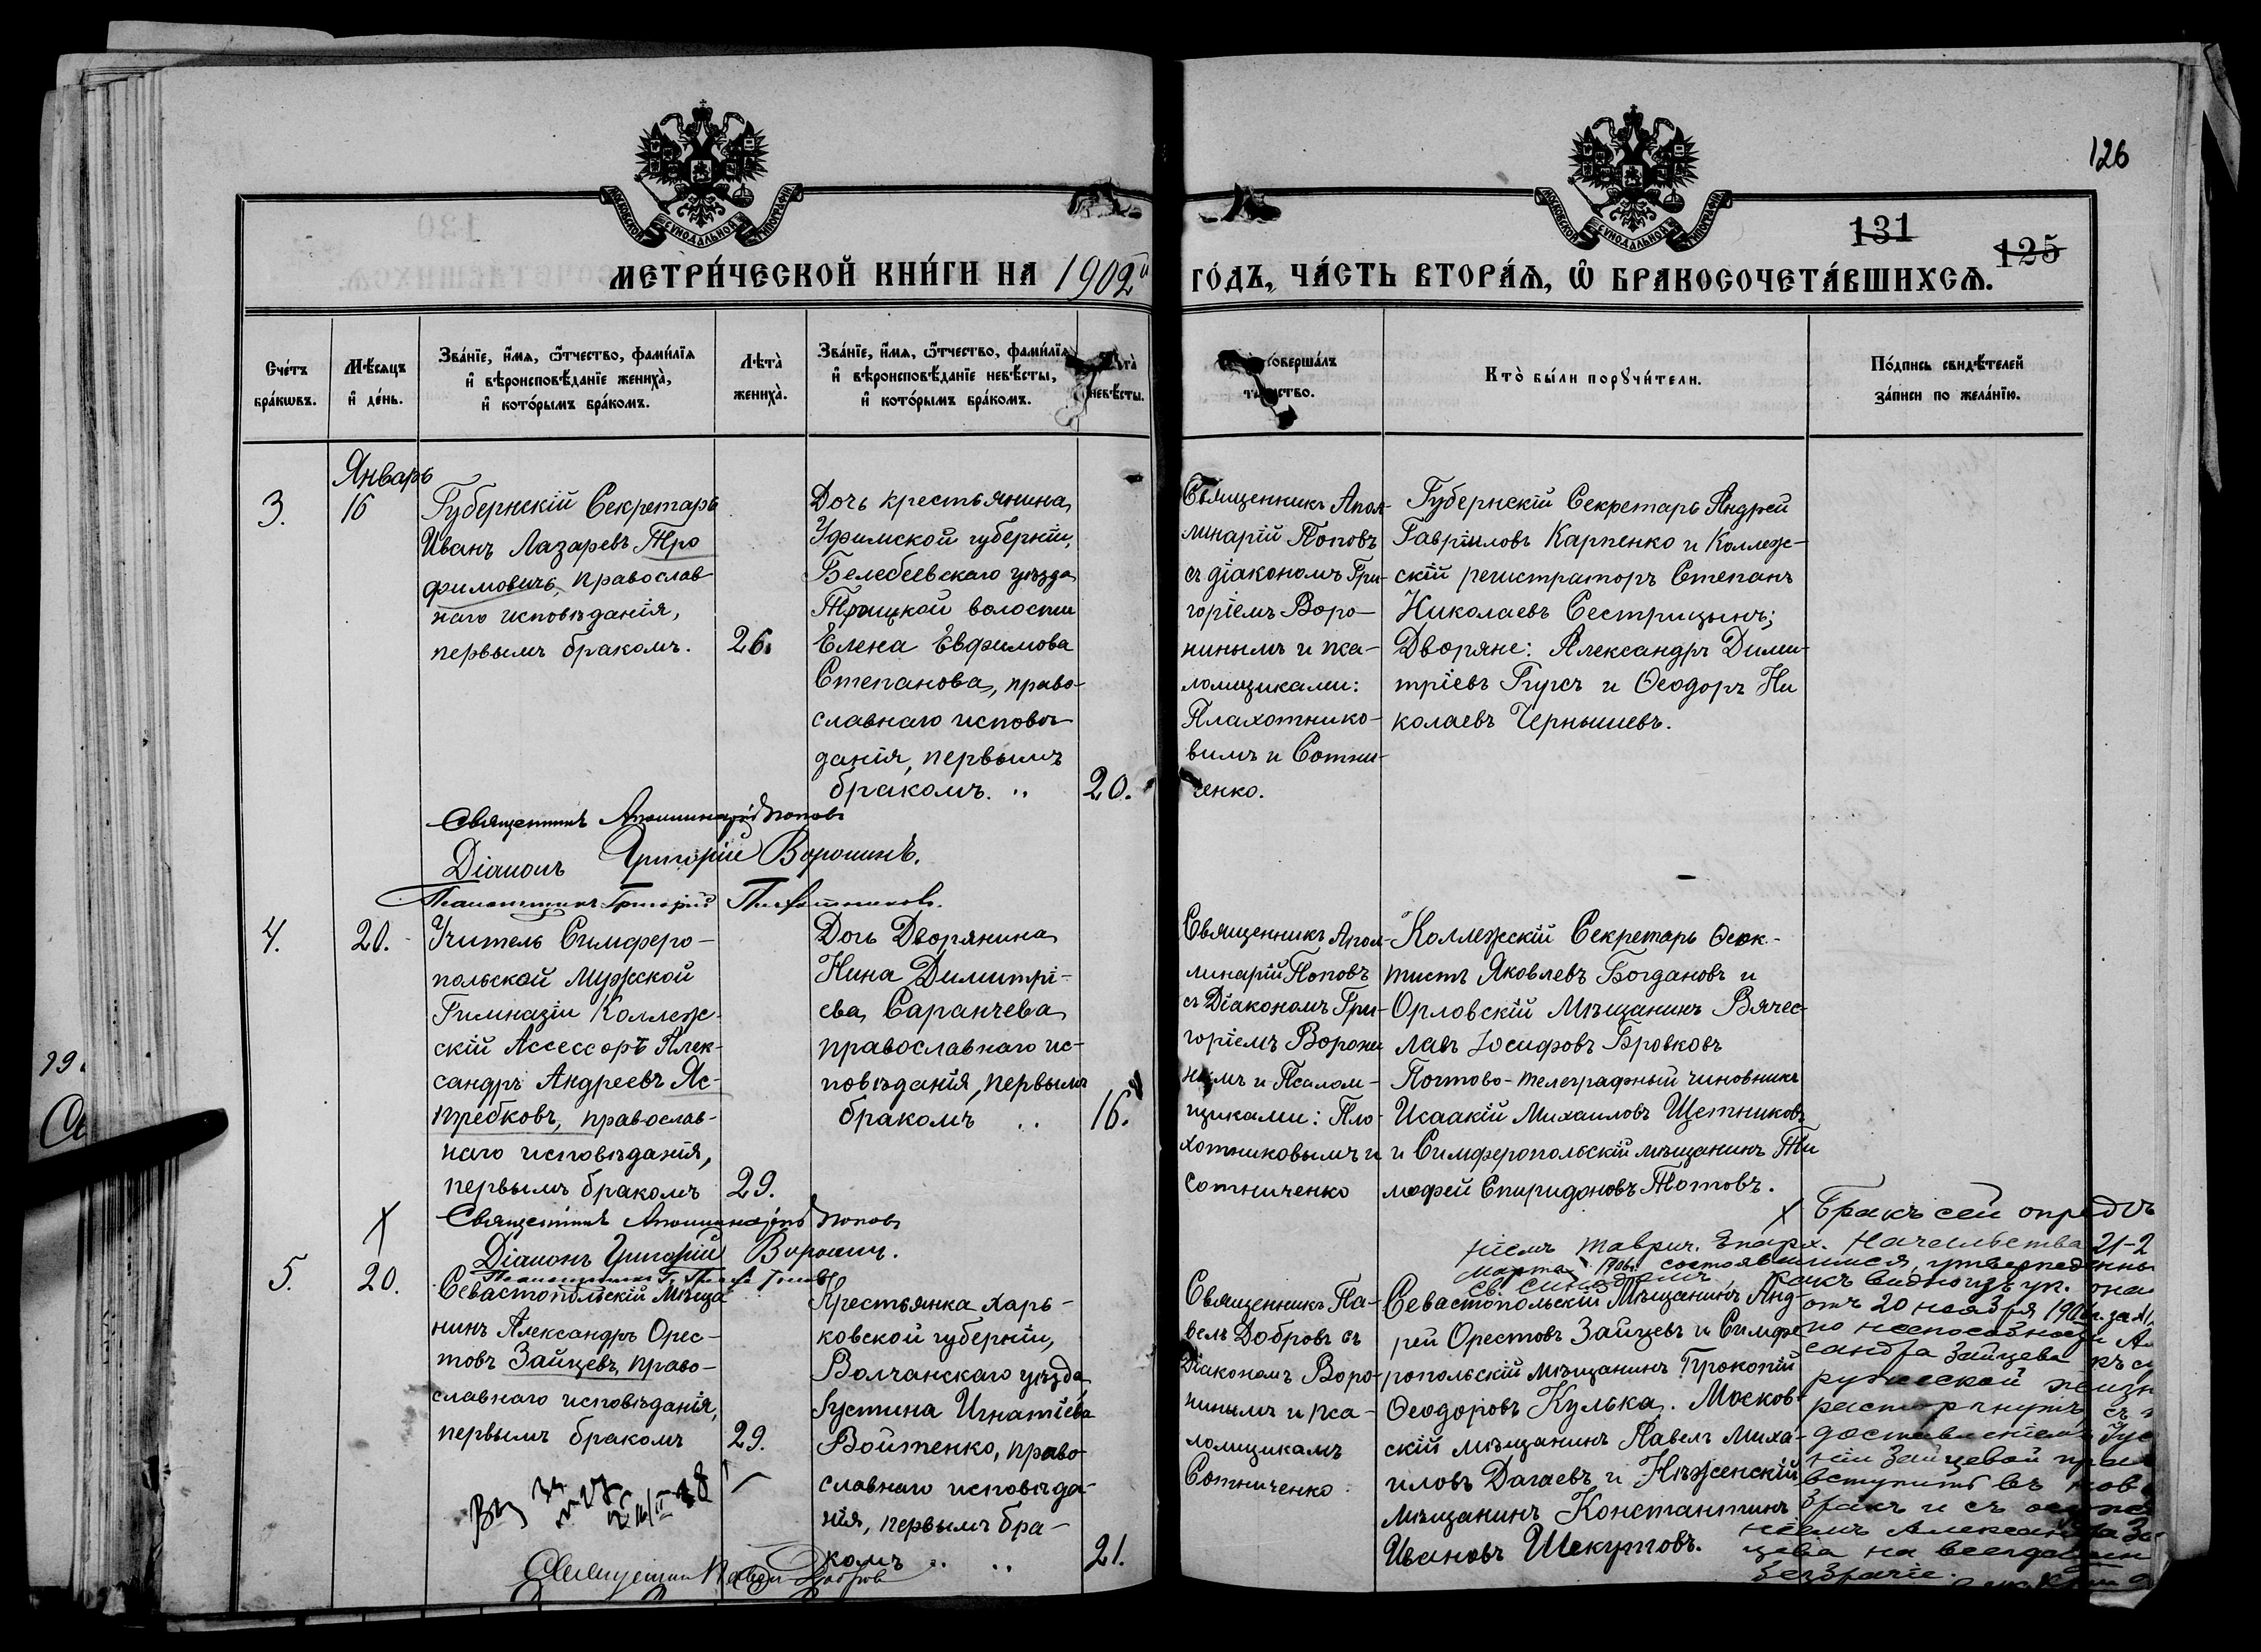 126
131
125
МОСКОВСКОЙ СѴНОДАЛЬНОЙ ТИПОГРАФІИ
МОСКОВСКОЙ СѴНОДАЛЬНОЙ ТИПОГРАФІИ
МЕТРИ́ЧЕСКОЙ КНИ́ГИ НА 1902й ГО́ДЪ, ЧА́СТЬ ВТОРА́Ѧ, Ѽ БРАКОСОЧЕТА́ВШИХСѦ.
Сче́тъ
бра́кѡвъ.
Мѣ́сѧцъ
и҆ де́нь.
Зва́нїе, и҆́мѧ, ѻ҆́тчество, фами́лїѧ
и҆ вѣроисповѣ́данїе жениха̀,
и҆ кото́рымъ бра́комъ.
Лѣта̀
жениха̀.
Зва́нїе, и҆́мѧ, ѻ҆́тчество, фами́лїѧ
и҆ вѣроисповѣ́данїе невѣ́сты,
и҆ кото́рымъ бра́комъ.
невѣ́сты.
совершалъ
Кто̀ бы́ли порꙋчи́тели.
По́дпись свидѣ́телей
за́писи по жела́нїю.
Январь
3.
16
Губернскій Секретарь
Иванъ Лазаревъ Тро
фимовичъ, православ
наго исповѣданія,
первымъ бракомъ.
26.
Дочь крестьянина
Уфимской губерніи,
Белебеевскаго уѣзда
Троицкой волости
Елена Евфимова
Степанова, право-
славнаго исповѣ-
данія, первымъ
бракомъ. "
20.
Священникъ Апол-
линарій Поповъ
съ діакономъ Гри-
горіемъ Воро-
нинымъ и пса-
ломщиками:
Плахотнико-
вымъ и Сотни-
ченко.
Губернскій Секретарь Андрей
Гавріиловъ Карпенко и Коллеж-
скій регистраторъ Степанъ
Николаевъ Сестрицынъ;
Дворяне: Александръ Дими-
тріевъ Гирсъ и Ѳеодоръ Ни
колаевъ Чернышевъ.
Священникъ Аполлинарій Поповъ
Діаконъ Григорій Воронинъ.
Псаломщикъ Григорій Плахотниковъ.
4.
20.
Учитель Симферо-
польской Мужской
Гимназіи Коллеж-
скій Ассессоръ Алек-
сандръ Андреевъ Яс-
требковъ, православ-
наго исповѣданія,
первымъ бракомъ
29.
Дочь Дворянина
Нина Димитрі-
ева Саранчева
православнаго ис-
повѣданія, первымъ
бракомъ ..
16.
Священникъ Апол-
линарій Поповъ
съ Діакономъ Гри-
горіемъ Ворони
нымъ и Псалом-
щиками: Пло-
хотниковымъ и
Сотниченко
Коллежскій Секретарь Ѳеок-
тистъ Яковлевъ Богдановъ и
Орловскій Мѣщанинъ Вячес-
лавъ Іосифовъ Бровковъ
Почтово-телеграфный чиновникъ
Исаакій Михаиловъ Щетниковъ
и Симферопольскій мѣщанинъ Ти
мофей Спиридоновъ Тотовъ.
Священникъ Аполлинарій Поповъ
Діаконъ Григорій Воронинъ.
Х
5.
20.
Севастопольскій Мѣща
нинъ Александръ Орес-
товъ Зайцевъ, право-
славнаго исповѣданія,
первымъ бракомъ
29.
Крестьянка Харь-
ковской губерніи,
Волчанскаго уѣзда
Густина Игнатіева
Войтенко, право
славнаго исповѣда-
нія, первымъ бра-
комъ .. ..
21.
Священникъ Па-
велъ Добровъ съ
Діакономъ Воро-
нинымъ и пса-
ломщикамъ
Сотниченко
Севастопольскій Мѣщанинъ Анд-
рей Орестовъ Зайцевъ и Симфе
ропольскій мѣщанинъ Прокопій
Ѳеодоровъ Кулька. Москов-
скій мѣщанинъ Павелъ Миха-
иловъ Дагаевъ и Нѣженскій
мѣщанинъ Константинъ
Ивановъ Шекутовъ.
Х Бракъ сей опредѣ
ніемъ Таврич. Епарх. Начальства 21-2
марта 1906г. состоявшимся, утвержденны
Св. Синодомъ, какъ видно изъ ук. она
отъ 20 ноября 1906г. за №
по неспособности Ал
сандра Зайцева къ с
ружеской жизн
расторгнутъ, съ
доставленіемъ Гус
ніи Зайцевой прав
вступить въ нов
бракъ и съ осужде
ніемъ Александра За
цева на всегдашн
безбрачіе.
Священникъ Павелъ Добровъ